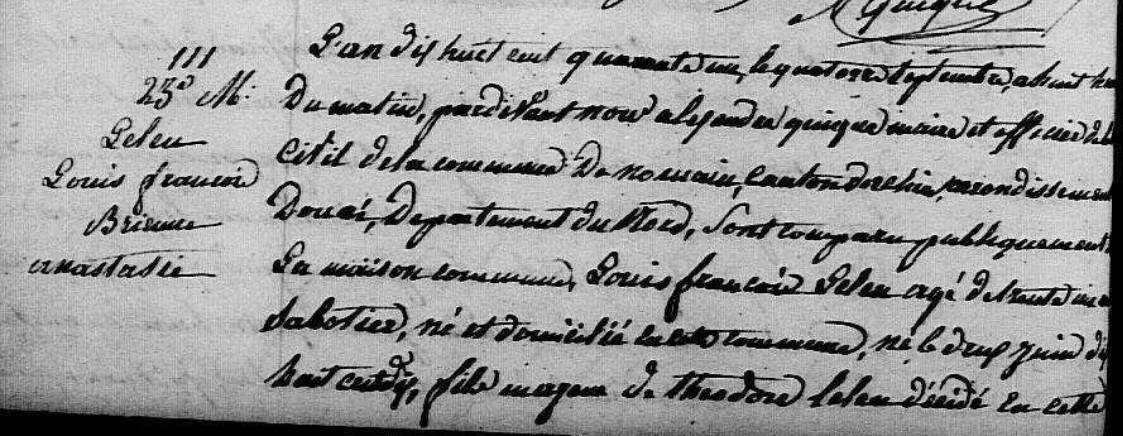 Guique
111
23e M.
Leleu
Louis françois
Brienne
anastasie
L'an dix huit cent quarante un, le quatorze septembre, a huit heu
Du matin, pardevant nous alexandre guique maire et officier de l
Civil de la commune De nomain, Canton Dorchies, arrondissement
Douai, Departement du Nord, Sont comparu publiquement
La maison commune, Louis françois Leleu agé de trente un
Sabotier, né et domicilié en cette commune, né le deux juin di
huit cent dix, fils majeur de theodore Leleu décédé en cette